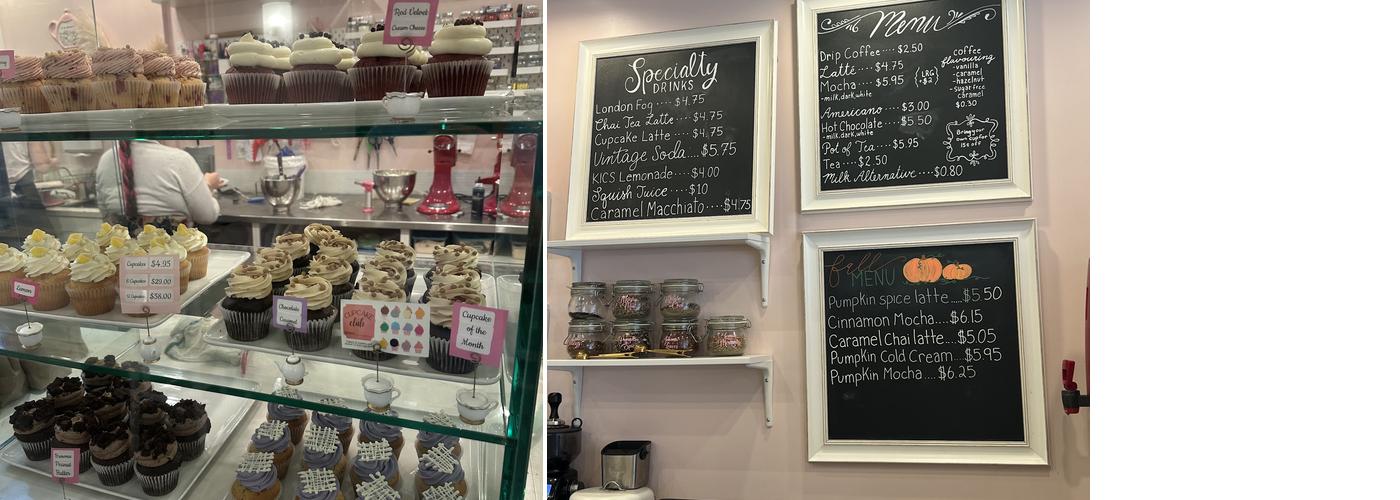 Red Velvet
Cream Cheese
Lemon
Cupcake $4.95
6 Cupcakes $29.00
12 Cupcakes $58.00
Chocolate
Caramel
CUPCAKE
club
Cupcake
of the
Month
Brownie
Peanut
Butter
Specialty
DRINKS
London Fog .... $4.75
Chai Tea Latte .... $4.75
Cupcake Latte .... $4.75
Vintage Soda .... $5.75
KICS Lemonade .... $4.00
Squish Juice .... $10
Caramel Macchiato .... $4.75
Menu
Drip Coffee .... $2.50
Latté .... $4.75
Mocha .... $5.95
-milk, dark, white
(LRG +$2)
Americano .... $3.00
Hot Chocolate .... $5.50
-milk, dark, white
Pot of Tea .... $5.95
Tea .... $2.50
Milk Alternative .... $0.80
coffee
flavouring
-vanilla
-caramel
-hazelnut
-sugar free
caramel
$0.30
Bring your
own cup for
15¢ off
fall
MENU
Pumpkin spice latte ..... $5.50
Cinnamon Mocha .... $6.15
Caramel Chai latte .... $5.05
Pumpkin Cold Cream .... $5.95
Pumpkin Mocha .... $6.25